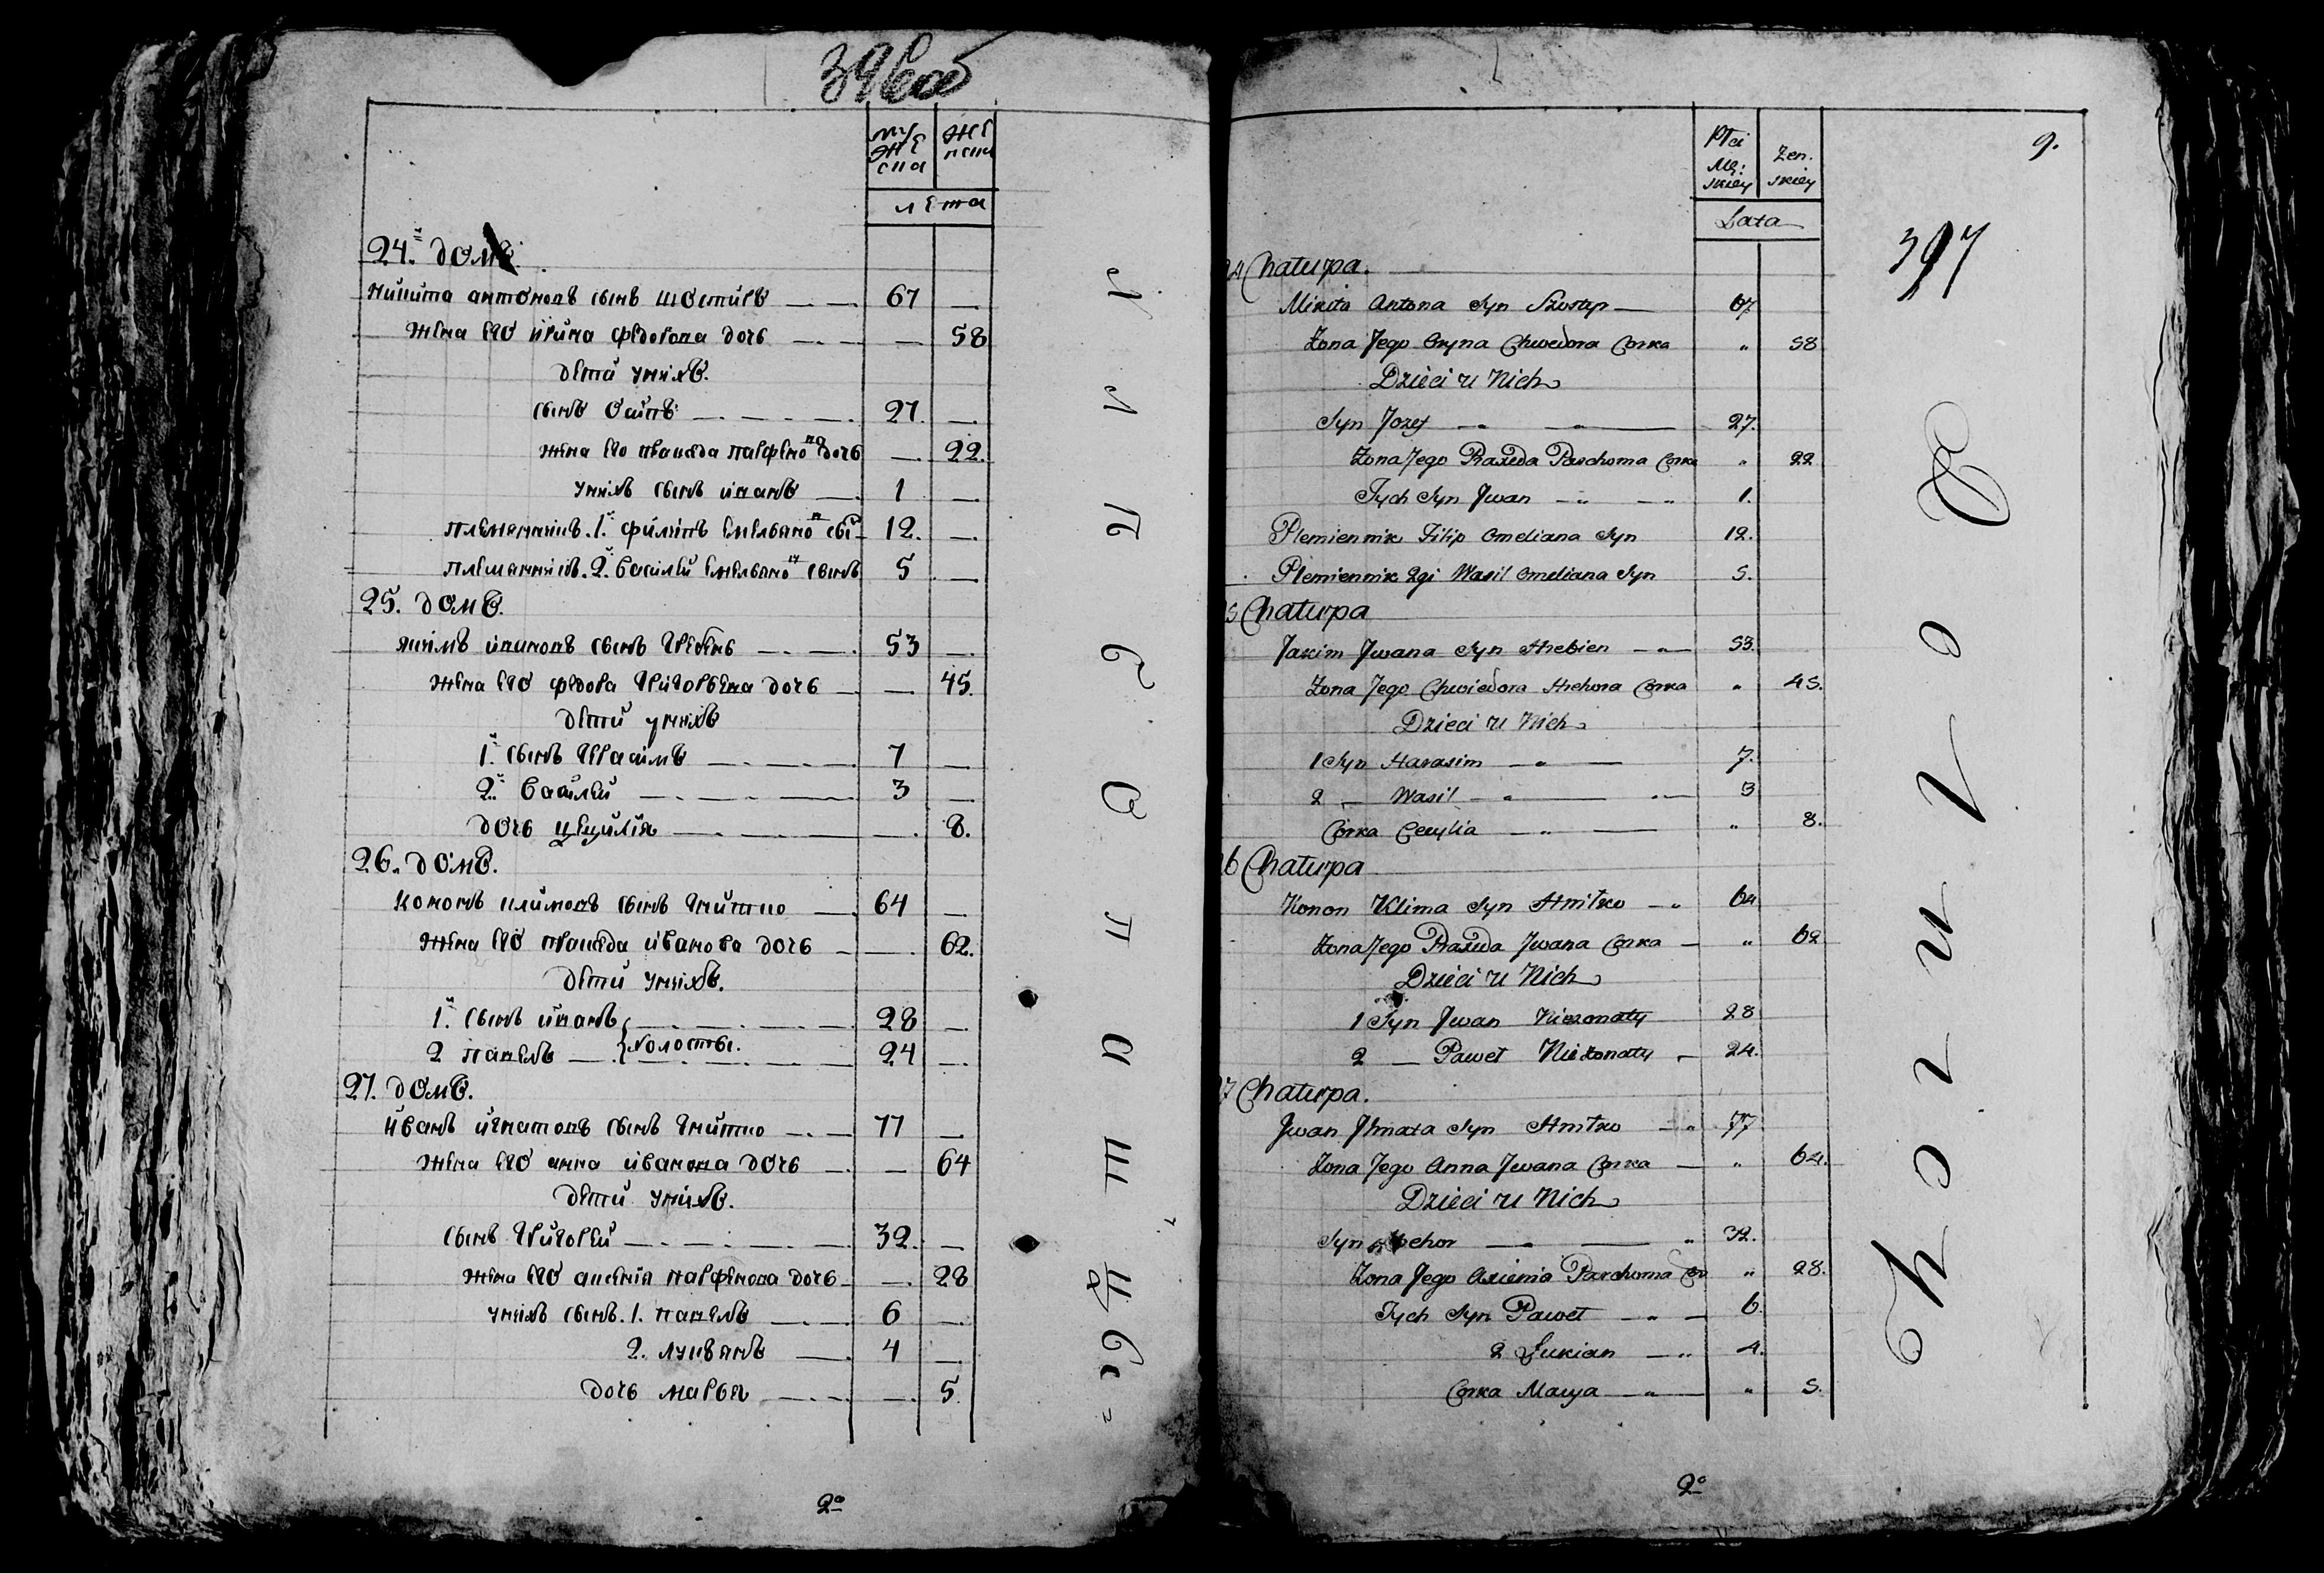 396об
муже
ска
жеnска
лѣта
24.й домъ.
Никита антоновъ сынъ шостыръ 67 —
жена его ирина федорова дочь — 58
дети унихъ.
сынъ Осипъ 27. —
жена его праксѣда парфенова дочь — 22.
унихъ сынъ иванъ 1 —
племянникъ. 1.й филипъ емельяновъ сы 12. —
племянникъ. 2.й василей емельяновъ сынъ 5 —
25. домъ.
якимъ ивановъ сынъ гребень 53 —
жена его федора григорьева дочь — 45.
дети унихъ
1.й сынъ герасимъ 7 —
2.й василей 3 —
дочь цецилія — 8.
26. домъ.
кононъ климовъ сынъ гнитко 64 —
жена его праксѣда иванова дочь — 62.
дети унихъ.
1.й сынъ иванъ 28 —
холосты.
2 павелъ 24 —
27. домъ.
иванъ игнатовъ сынъ гнитко 77 —
жена его анна иванова дочь — 64
дети унихъ.
сынъ григорей 32. —
жена его аксенія парфенова дочь — 28
унихъ сынъ. 1. павелъ 6 —
2. лукьянъ 4 —
дочь марья — 5.
2º
Płci
Mę:
skiey
Żen.
skiey
9.
Lata
397
24 Chałupa.
Mikita Antona Syn Szostyr 67
Żona Jego Oryna Chwedora Corka " 58
Dzieci u Nich
Syn Jozef 27.
Żona Jego Praxeda Parchoma Corka " 22
Tych Syn Jwan 1.
Plemiennik Filip Omeliana Syn 12.
Plemiennik 2gi Wasil Omeliana Syn 5.
25 Chałupa
Jakim Jwana Syn Hrebien 53.
Żona Jego Chwiedora Hrehora Corka " 45.
Dzieci u Nich
1 Syn Harasim 7.
2 — Wasil 3
Corka Cecylia " 8.
26 Chałupa
Konon Klima Syn Hnitko 64
Żona Jego Praxeda Jwana Corka " 62
Dzieci u Nich
1 Syn Jwan Nieżonaty 28
2 — Paweł Nieżonaty 24.
27 Chałupa.
Jwan Jhnata Syn Hnitko 77
Żona Jego Anna Jwana Corka " 64.
Dzieci u Nich
Syn Hrehor 32.
Żona Jego Axienia Parchoma Cor " 28.
Tych Syn Paweł 6.
2 Łukian 4.
Corka Marya " 5.
2º